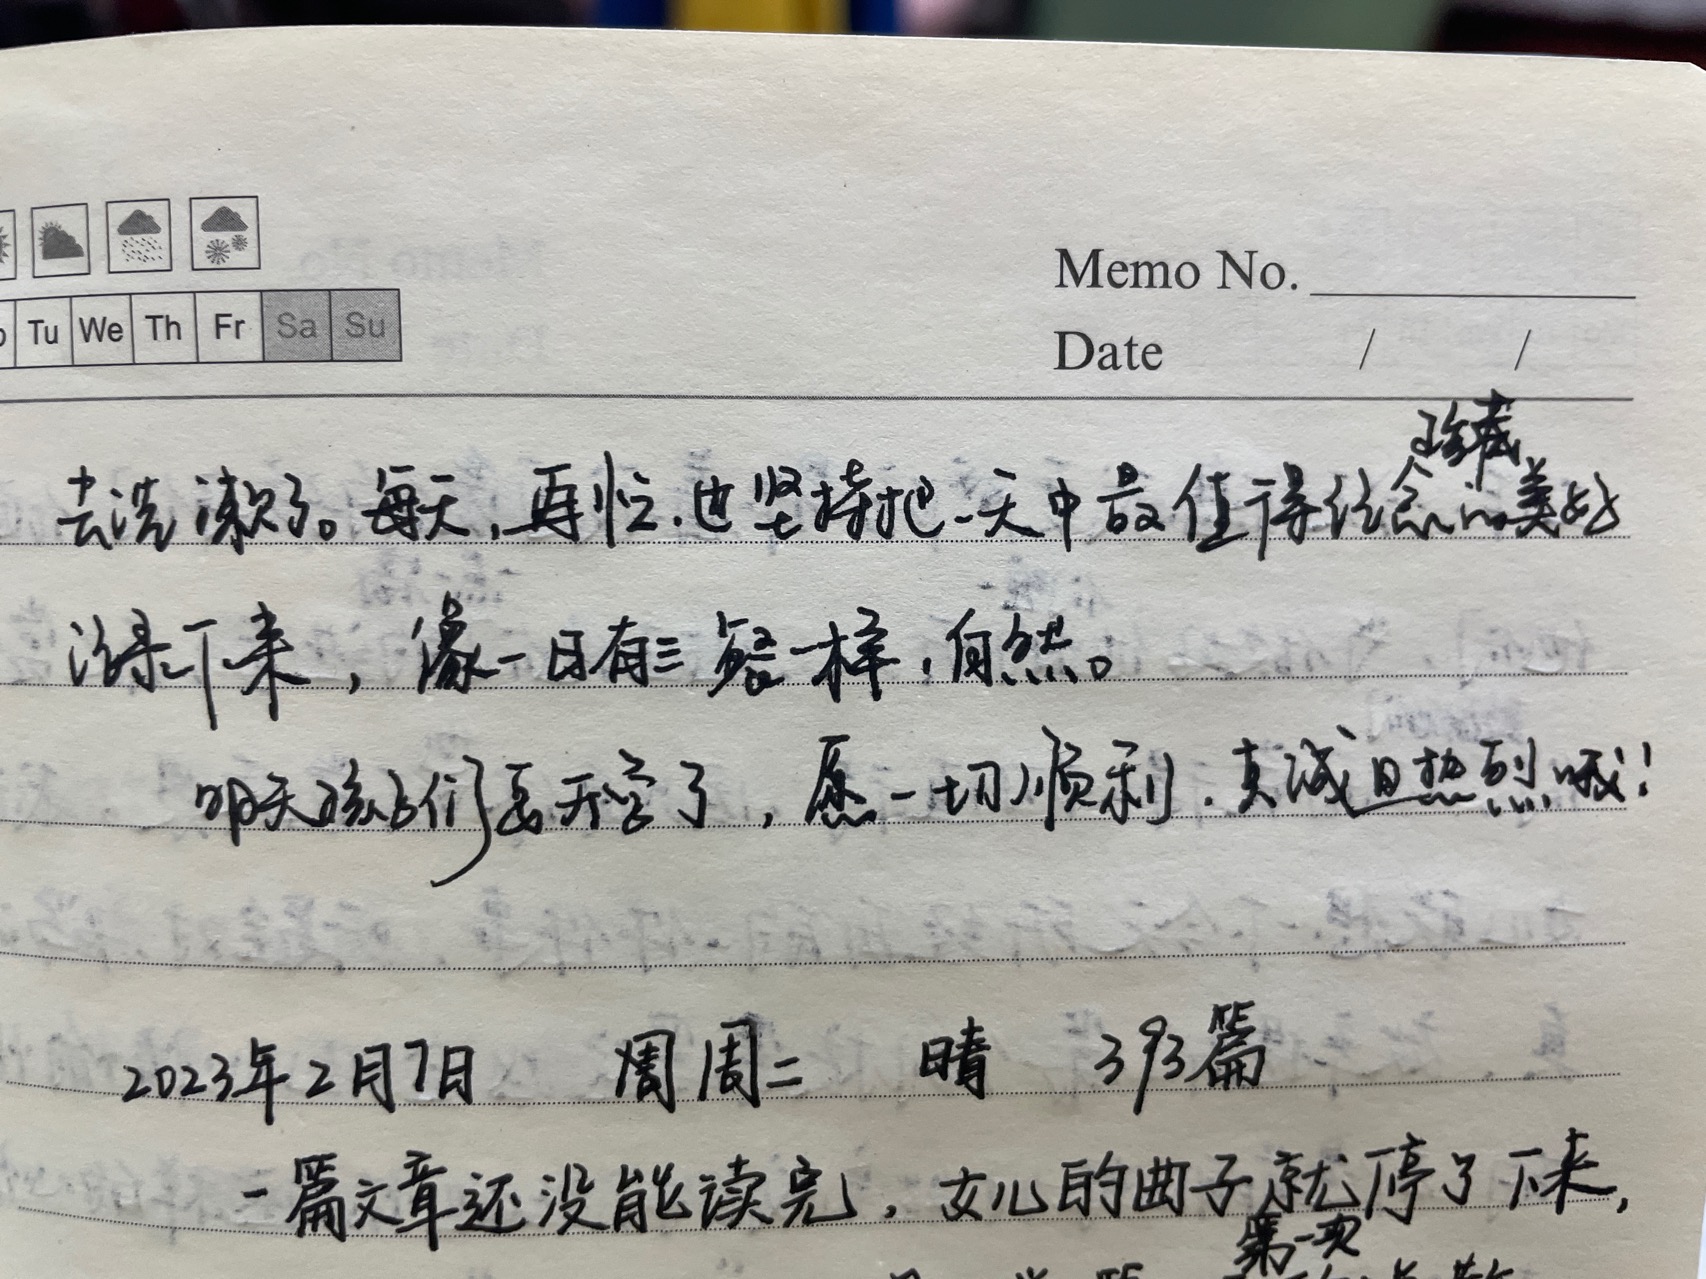 Tu We Th Fr Sa Su
Memo No.
Date / /
珍藏
去洗漱了。每天,再忙,也坚持把一天中最值得纪念的美好
记录下来,像一日有三餐一样,自然。
明天孩子们要开学了,愿一切顺利,真诚且热烈哦!
2023年2月7日 周周二 晴 393篇
一篇文章还没能读完,女儿的曲子就停了下来,
第一次